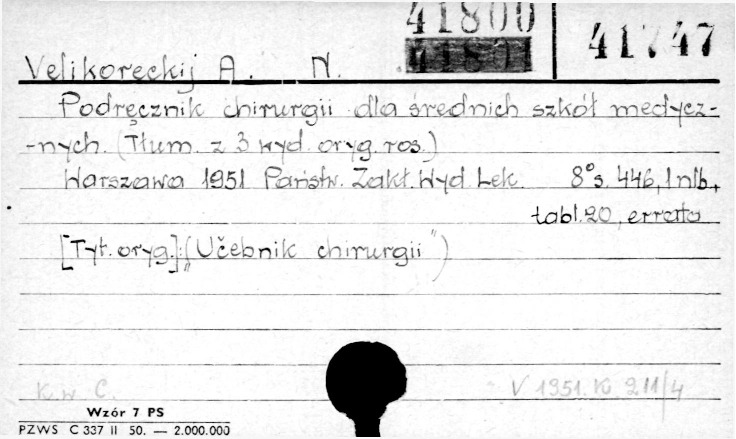 41800
41801
41747
Velikoreckij A. N.
Podręcznik chirurgii dla średnich szkół medycz-
-nych. (Tłum. z 3 wyd. oryg. ros.)
Warszawa 1951 Państw. Zakł. Wyd. Lek. 8° s. 446, 1 nlb.,
tabl. 20, errata
[Tyt. oryg.]: („Učebnik chirurgii")
K. w C.
V 1951. K. 211/4
Wzór 7 PS
PZWS C 337 II 50. — 2.000.000